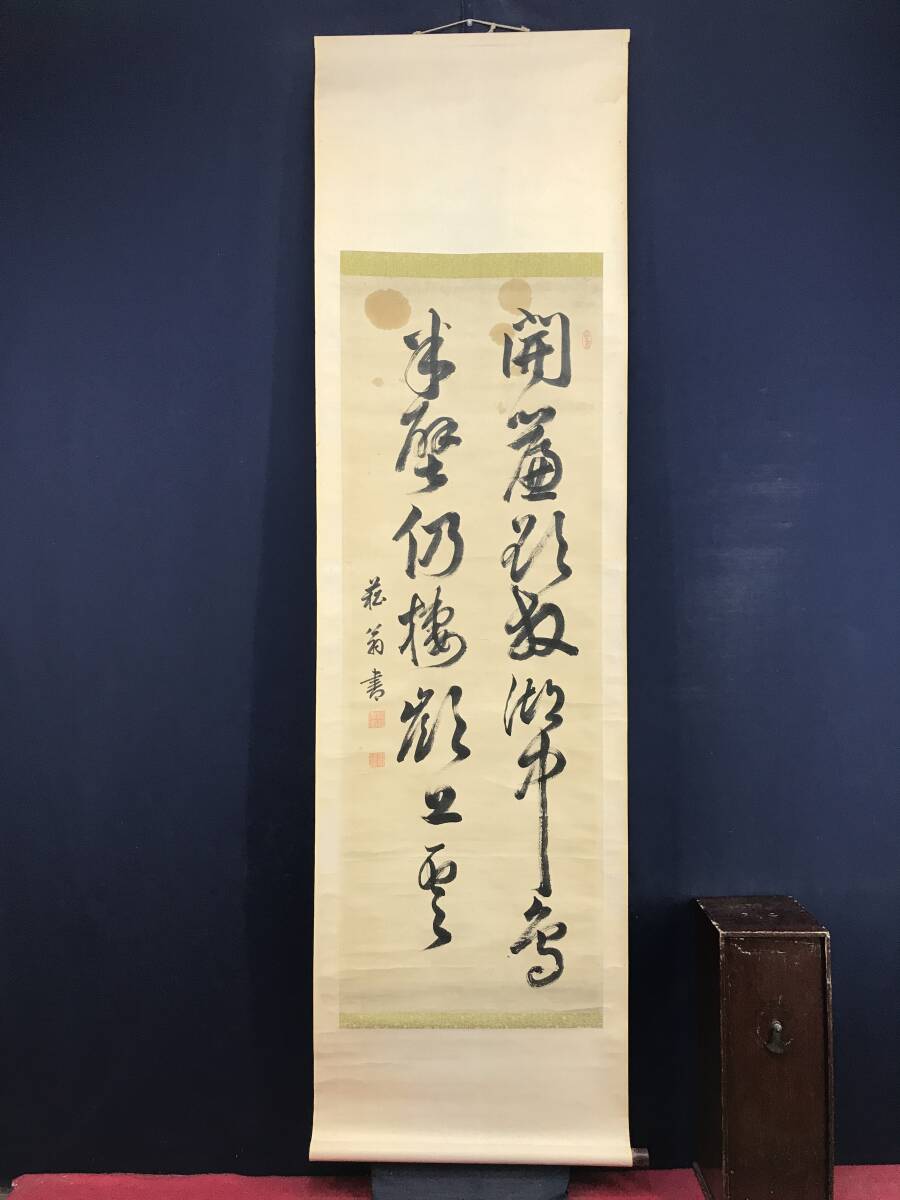 開簾欲放湖中鳥
半壁仍棲嶺上雲
荘翁書